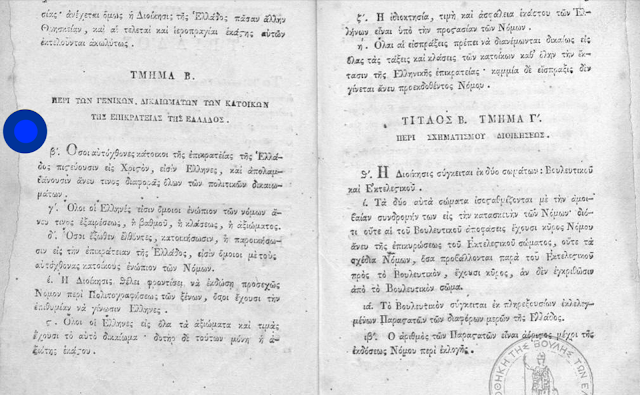 σίας· ἀνέχεται ὅμως ἡ Διοίκησις τῆς Ἑλλάδος πᾶσαν ἄλλην
Θρησκείαν, καὶ αἱ τελεταὶ καὶ ἱεροπραγίαι ἑκάστης αὐτῶν
ἐκτελοῦνται ἀκωλύτως.
ΤΜΗΜΑ Β.
ΠΕΡΙ ΤΩΝ ΓΕΝΙΚΩΝ ΔΙΚΑΙΩΜΑΤΩΝ ΤΩΝ ΚΑΤΟΙΚΩΝ
ΤΗΣ ΕΠΙΚΡΑΤΕΙΑΣ ΤΗΣ ΕΛΛΑΔΟΣ.
β΄. Ὅσοι αὐτόχθονες κάτοικοι τῆς ἐπικρατείας τῆς Ἑλλά-
δος πιστεύουσιν εἰς Χριστὸν, εἰσὶν Ἕλληνες, καὶ ἀπολαμ-
βάνουσιν ἄνευ τινὸς διαφορᾶς ὅλων τῶν πολιτικῶν δικαιω-
μάτων.
γ΄. Ὅλοι οἱ Ἕλληνες εἰσὶν ὅμοιοι ἐνώπιον τῶν νόμων ἄ-
νευ τινος ἐξαιρέσεως, ἢ βαθμοῦ, ἢ κλάσεως, ἢ ἀξιώματος.
δ΄. Ὅσοι ἔξωθεν ἐλθόντες, κατοικήσωσιν, ἢ παροικήσω-
σιν εἰς τὴν ἐπικράτειαν τῆς Ἑλλάδος, εἰσὶν ὅμοιοι μὲ τοὺς
αὐτόχθονας κατοίκους ἐνώπιον τῶν Νόμων.
ε΄. Ἡ Διοίκησις θέλει φροντίσει νὰ ἐκδώσῃ προσεχῶς
Νόμον περὶ Πολιτογραφήσεως τῶν ξένων, ὅσοι ἔχουσι τὴν
ἐπιθυμίαν νὰ γίνωσιν Ἕλληνες.
ς΄. Ὅλοι οἱ Ἕλληνες εἰς ὅλα τὰ ἀξιώματα καὶ τιμὰς
ἔχουσι τὸ αὐτὸ δικαίωμα· δοτὴρ δὲ τούτων μόνη ἡ ἀ-
ξιότης ἑκάστου.
ζ΄. Ἡ ἰδιοκτησία, τιμὴ καὶ ἀσφάλεια ἑκάστου τῶν Ἑλ-
λήνων εἶναι ὑπὸ τὴν προστασίαν τῶν Νόμων.
η. Ὅλαι αἱ εἰσπράξεις πρέπει νὰ διανέμωνται δικαίως εἰς
ὅλας τὰς τάξεις καὶ κλάσεις τῶν κατοίκων καθ᾽ ὅλην τὴν ἔκ-
τασιν τῆς Ἑλληνικῆς ἐπικρατείας· καμμία δὲ εἴσπραξις δὲν
γίνεται ἄνευ προεκδοθέντος Νόμου.
ΤΙΤΛΟΣ Β. ΤΜΗΜΑ Γ΄.
ΠΕΡΙ ΣΧΗΜΑΤΙΣΜΟΥ ΔΙΟΙΚΗΣΕΩΣ.
θ΄. Ἡ Διοίκησις σύγκειται ἐκ δύο σωμάτων: Βουλευτικοῦ
καὶ Ἐκτελεστικοῦ.
ι. Τὰ δύο αὐτὰ σώματα ἰσοσταθμίζονται μὲ τὴν ἀμοι-
βαίαν συνδρομήν των εἰς τὴν κατασκευὴν τῶν Νόμων· διό-
τι οὔτε αἱ τοῦ Βουλευτικοῦ ἀποφάσεις ἔχουσι κῦρος Νόμου
ἄνευ τῆς ἐπικυρώσεως τοῦ Ἐκτελεστικοῦ σώματος, οὔτε τὰ
σχέδια Νόμων, ὅσα προβάλλονται παρὰ τοῦ Ἐκτελεστικοῦ
πρὸς τὸ Βουλευτικὸν, ἔχουσι κῦρος, ἂν δὲν ἐγκριθῶσιν
ἀπὸ τὸ Βουλευτικὸν σῶμα.
ια. Τὸ Βουλευτικὸν σύγκειται ἐκ πληρεξουσίων ἐκλελεγ-
μένων Παραστατῶν τῶν διαφόρων μερῶν τῆς Ἑλλάδος.
ιβ΄. Ὁ ἀριθμὸς τῶν Παραστατῶν εἶναι ἀόριστος μέχρι τῆς
ἐκδόσεως Νόμου περὶ ἐκλογῆς.
ΟΘΗΚΗ ΤΗΣ ΒΟΥΛΗΣ ΤΩΝ ΕΛ